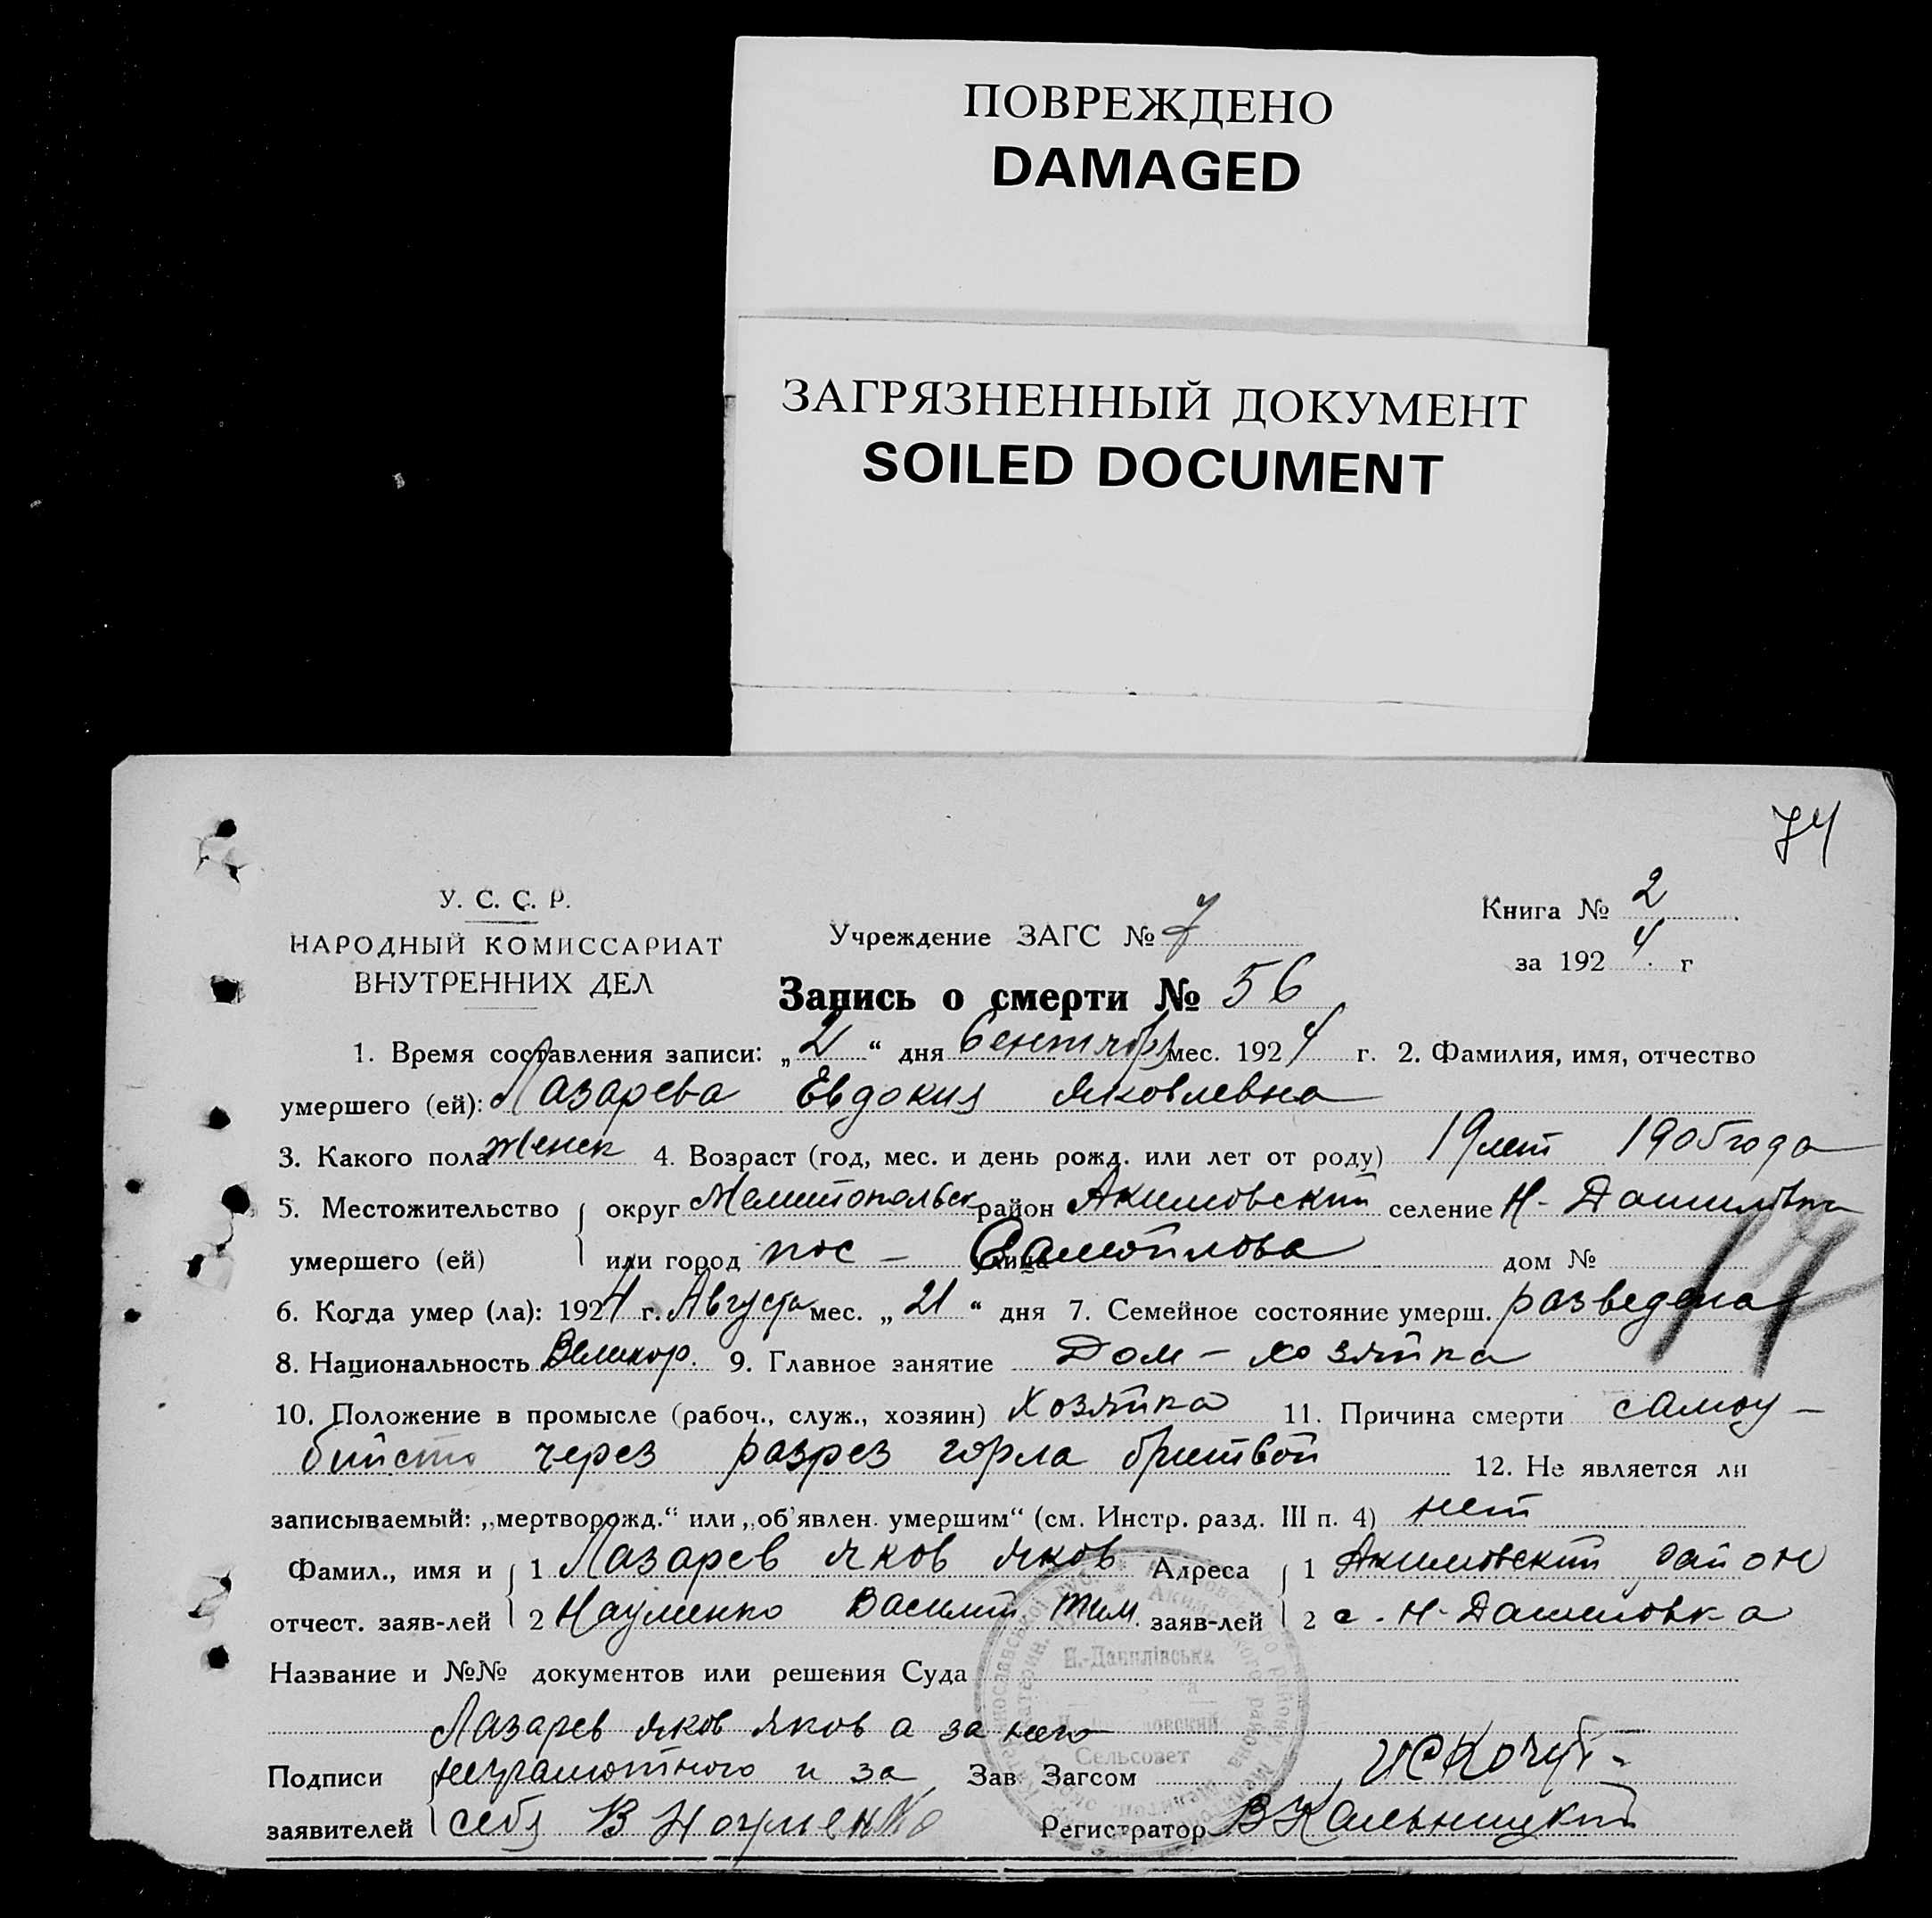 ПОВРЕЖДЕНО
DAMAGED
ЗАГРЯЗНЕННЫЙ ДОКУМЕНТ
SOILED DOCUMENT
74
У. С. С. Р.
НАРОДНЫЙ КОМИССАРИАТ
ВНУТРЕННИХ ДЕЛ
Учреждение ЗАГС № 7
Книга № 2
за 1924 г
Запись о смерти № 56
1. Время составления записи: „2“ дня Сентября мес. 1924 г. 2. Фамилия, имя, отчество
умершего (ей): Лазарева Евдокия Яковлевна
3. Какого пола женск 4. Возраст (год, мес. и день рожд. или лет от роду) 19 лет 1905 года
5. Местожительство округ Мелитопольск район Акимовский селение Н-Даниловка
умершего (ей) или город пос - улица Самойлова дом №
17
6. Когда умер (ла): 1924 г. Августа мес. „21“ дня 7. Семейное состояние умерш. разведена
8. Национальность Великор. 9. Главное занятие Дом - хозяйка
10. Положение в промысле (рабоч., служ., хозяин) хозяйка 11. Причина смерти самоу-
бийство через разрез горла бритвой 12. Не является ли
записываемый: „мертворожд.“ или „об'явлен. умершим“ (см. Инстр. разд. III п. 4) нет
Фамил., имя и 1 Лазарев Яков Яков Адреса 1 Акимовский район
отчест. заяв-лей 2 Науменко Василий Тим. заяв-лей 2 с. Н-Даниловка
Название и №№ документов или решения Суда
Н.-Данилівська
Сельсовет
Лазарев Яков Яков а за него
Подписи неграмотного и за Зав Загсом
заявителей себя В Науменко Регистратор ВКальницкий